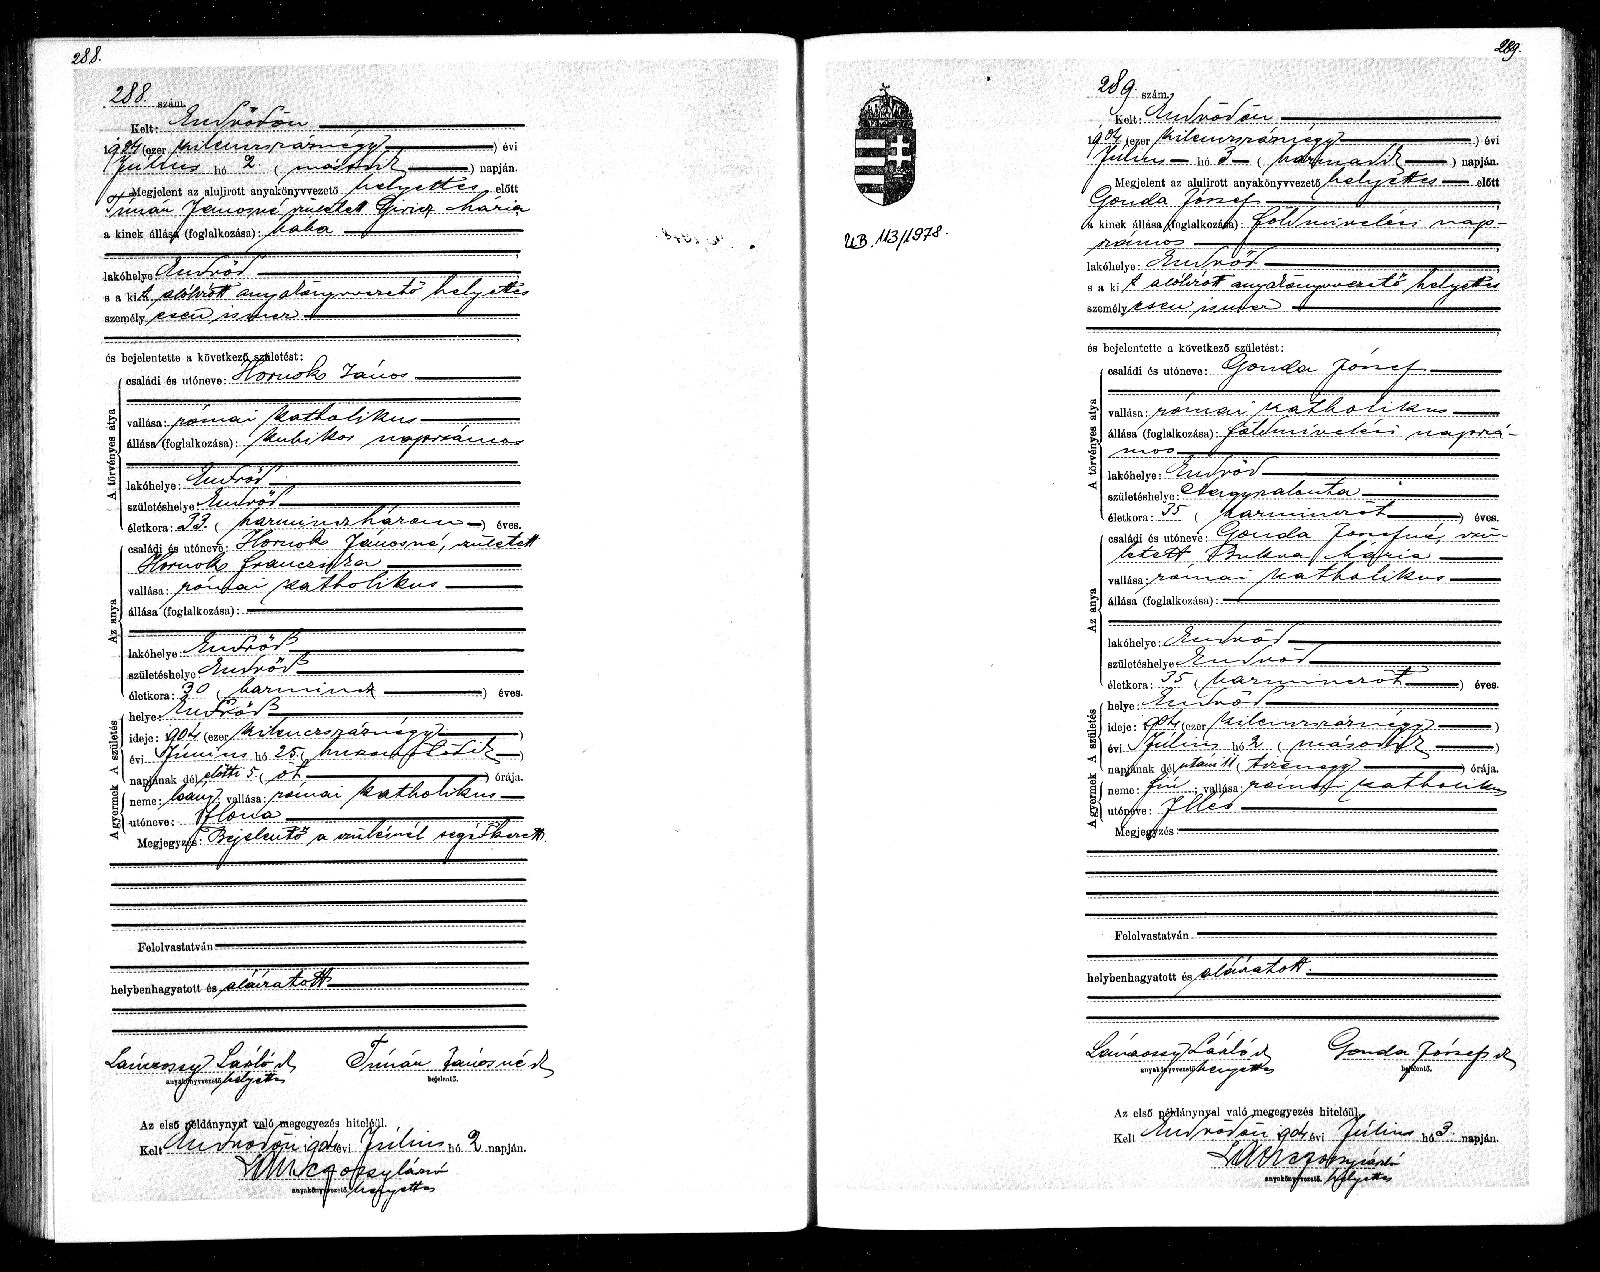 288.
288. szám.
Kelt: Endrődön
1904 (ezer kilenczszáznégy) évi
Július hó 2 (második) napján.
Megjelent az alulirott anyakönyvvezető helyettes előtt
Tímár Jánosné született Giricz Mária
a kinek állása (foglalkozása): bába
lakóhelye: Endrőd
s a kit alólirott anyakönyvvezető helyettes
személyesen ismer
és bejelentette a következő születést:
A törvényes atya
családi és utóneve: Hornok János
vallása: római katholikus
állása (foglalkozása): kubikos napszámos
lakóhelye: Endrőd
születéshelye: Endrőd
életkora: 33. (harminczhárom) éves.
Az anya
családi és utóneve: Hornok Jánosné, született
Hornok Francziska
vallása: római katholikus
állása (foglalkozása):
lakóhelye: Endrőd
születéshelye: Endrőd
életkora: 30 (harmincz) éves.
A gyermek A születés
helye: Endrőd
ideje: 1904 (ezer kilenczszáznégy)
évi Június hó 25. (huszonötödik)
napjának dél előtti 5 (öt) órája.
neme: leány; vallása: római katholikus
utóneve: Ilona
Megjegyzés: Bejelentő a szülésnél segédkezett.
Felolvastatván
helybenhagyatott és aláiratott
Lánczossy László
anyakönyvvezető helyettes
Tímár Jánosné
bejelentő.
Az első példánynyal való megegyezés hiteléül.
Kelt Endrődön 1904 évi Július hó 2 napján.
Lánczossy László
anyakönyvvezető. helyettes
289.
UB. 113/1978.
289 szám.
Kelt: Endrődön
1904 (ezer kilenczszáznégy) évi
Július hó 3 (harmadik) napján.
Megjelent az alulirott anyakönyvvezető helyettes előtt
Gonda József
a kinek állása (foglalkozása): földmivelési nap-
számos
lakóhelye: Endrőd
s a kit alólirott anyakönyvvezető helyettes
személyesen ismer
és bejelentette a következő születést:
A törvényes atya
családi és utóneve: Gonda József
vallása: római katholikus
állása (foglalkozása): földmivelési napszá-
mos
lakóhelye: Endrőd
születéshelye: Nagyszalonta
életkora: 35 (harminczöt) éves.
Az anya
családi és utóneve: Gonda Józsefné, szü-
letett Bukva Mária
vallása: római katholikus
állása (foglalkozása):
lakóhelye: Endrőd
születéshelye: Endrőd
életkora: 35 (harminczöt) éves.
A gyermek A születés
helye: Endrőd
ideje: 1904 (ezer kilenczszáznégy)
évi Július hó 2 (második)
napjának dél utáni 11 (tizenegy) órája.
neme: fiú; vallása: római katholikus
utóneve: Illés
Megjegyzés:
Felolvastatván
helybenhagyatott és aláiratott.
Lánczossy László
anyakönyvvezető helyettes
Gonda József
bejelentő.
Az első példánynyal való megegyezés hiteléül.
Kelt Endrődön 1904 évi Július hó 3. napján.
Lánczossy László
anyakönyvvezető. helyettes